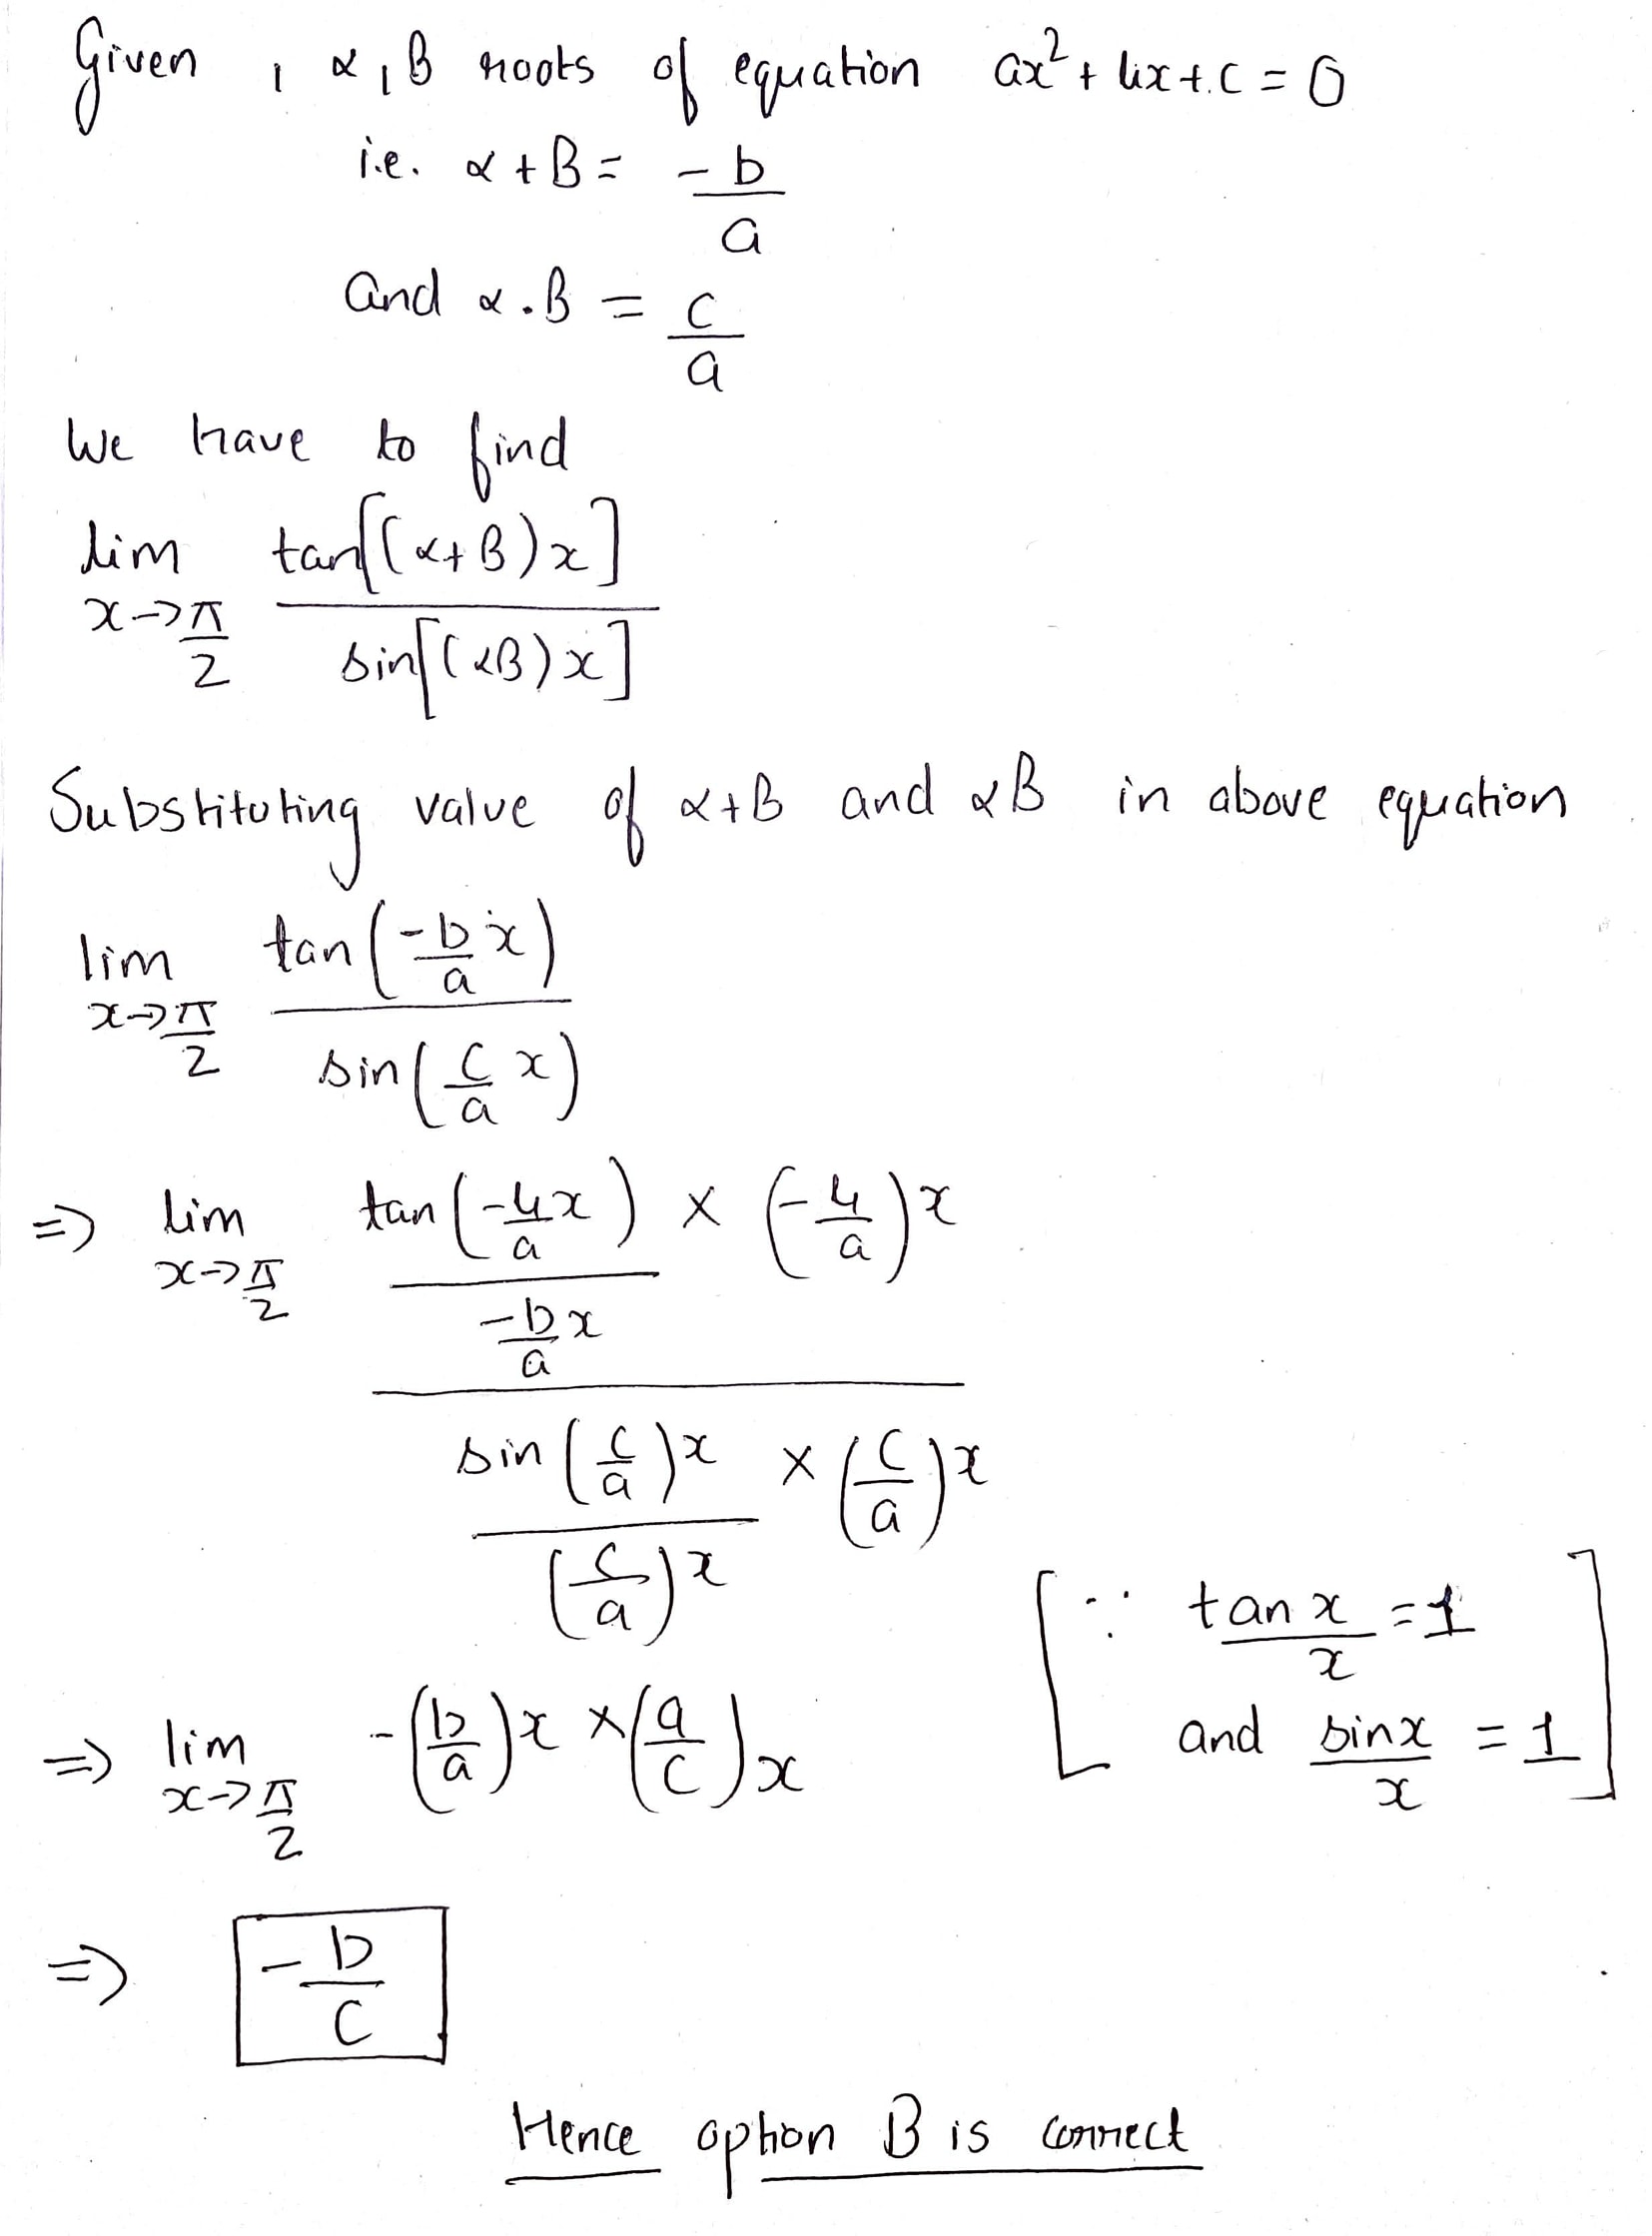 Given, α,β roots of equation ax² + bx + c = 0
i.e. α + β = -b/a
and α.β = c/a
We have to find
lim x→π/2 tan[(α+β)x] / sin[(αβ)x]
Substituting value of α+β and αβ in above equation
lim x→π/2 tan(-b/a x) / sin(c/a x)
⇒ lim x→π/2 (tan(-b/a x) / (-b/a x) × (-b/a)x) / (sin(c/a)x / (c/a)x × (c/a)x)
[∵ tan x / x = 1
and sin x / x = 1]
⇒ lim x→π/2 -(b/a)x × (a/c)x
⇒ -b/c
Hence option B is correct